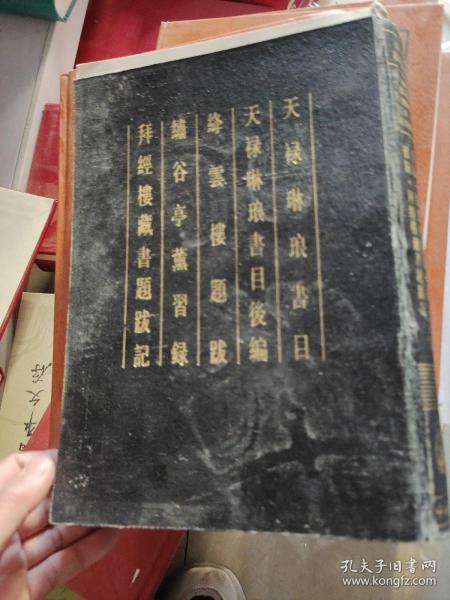 天禄琳琅書目
天禄琳琅書目後編
絳雲樓題跋
繡谷亭薰習録
拜經樓藏書題跋記
孔夫子旧书网
www.kongfz.com